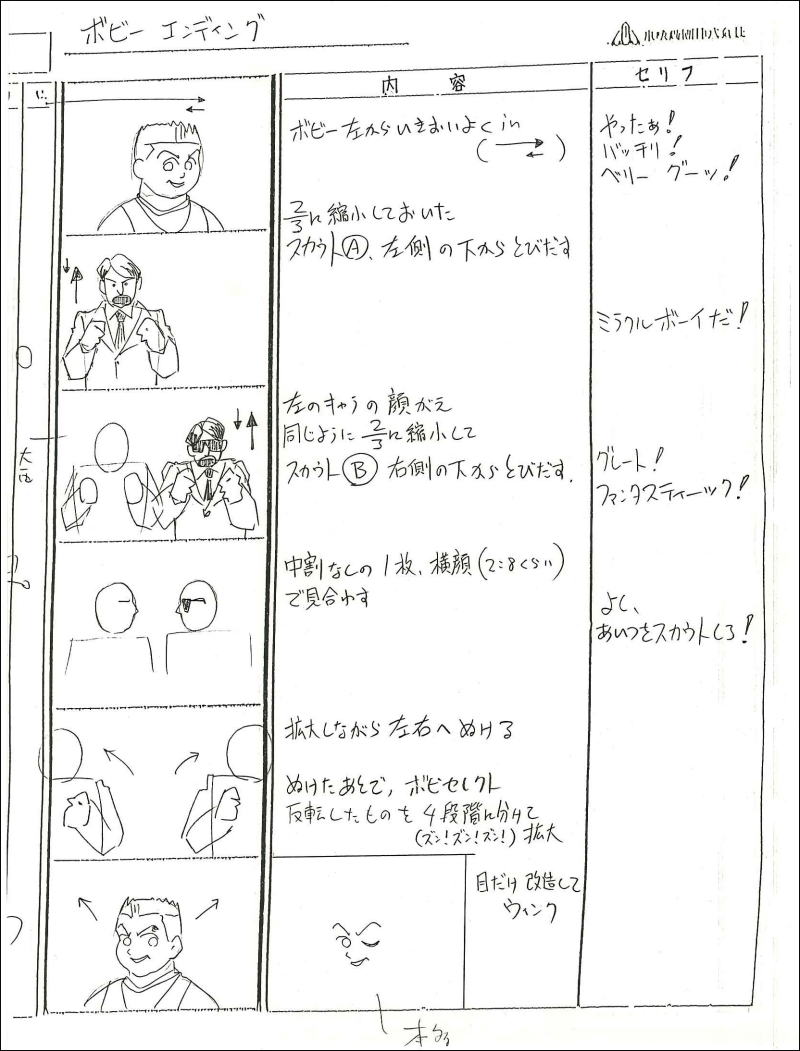 ボビー エンディング
内容
セリフ
ボビー左からいきおいよくin
やったぁ!
バッチリ!
ベリー グーッ!
2/3に縮小しておいた
スカウトⒶ、左側の下からとびだす
ミラクルボーイだ!
左のキャラの顔がえ
同じように2/3に縮小して
スカウトⒷ右側の下からとびだす.
グレート!
ファンタスティーック!
中割なしの1枚、横顔(2:8くらい)
で見合わす
よし、
あいつをスカウトしろ!
拡大しながら左右へぬける
ぬけたあとで,ボビセレクト
反転したものを4段階に分けて
(ズン!ズン!ズン!)拡大
目だけ改造して
ウィンク